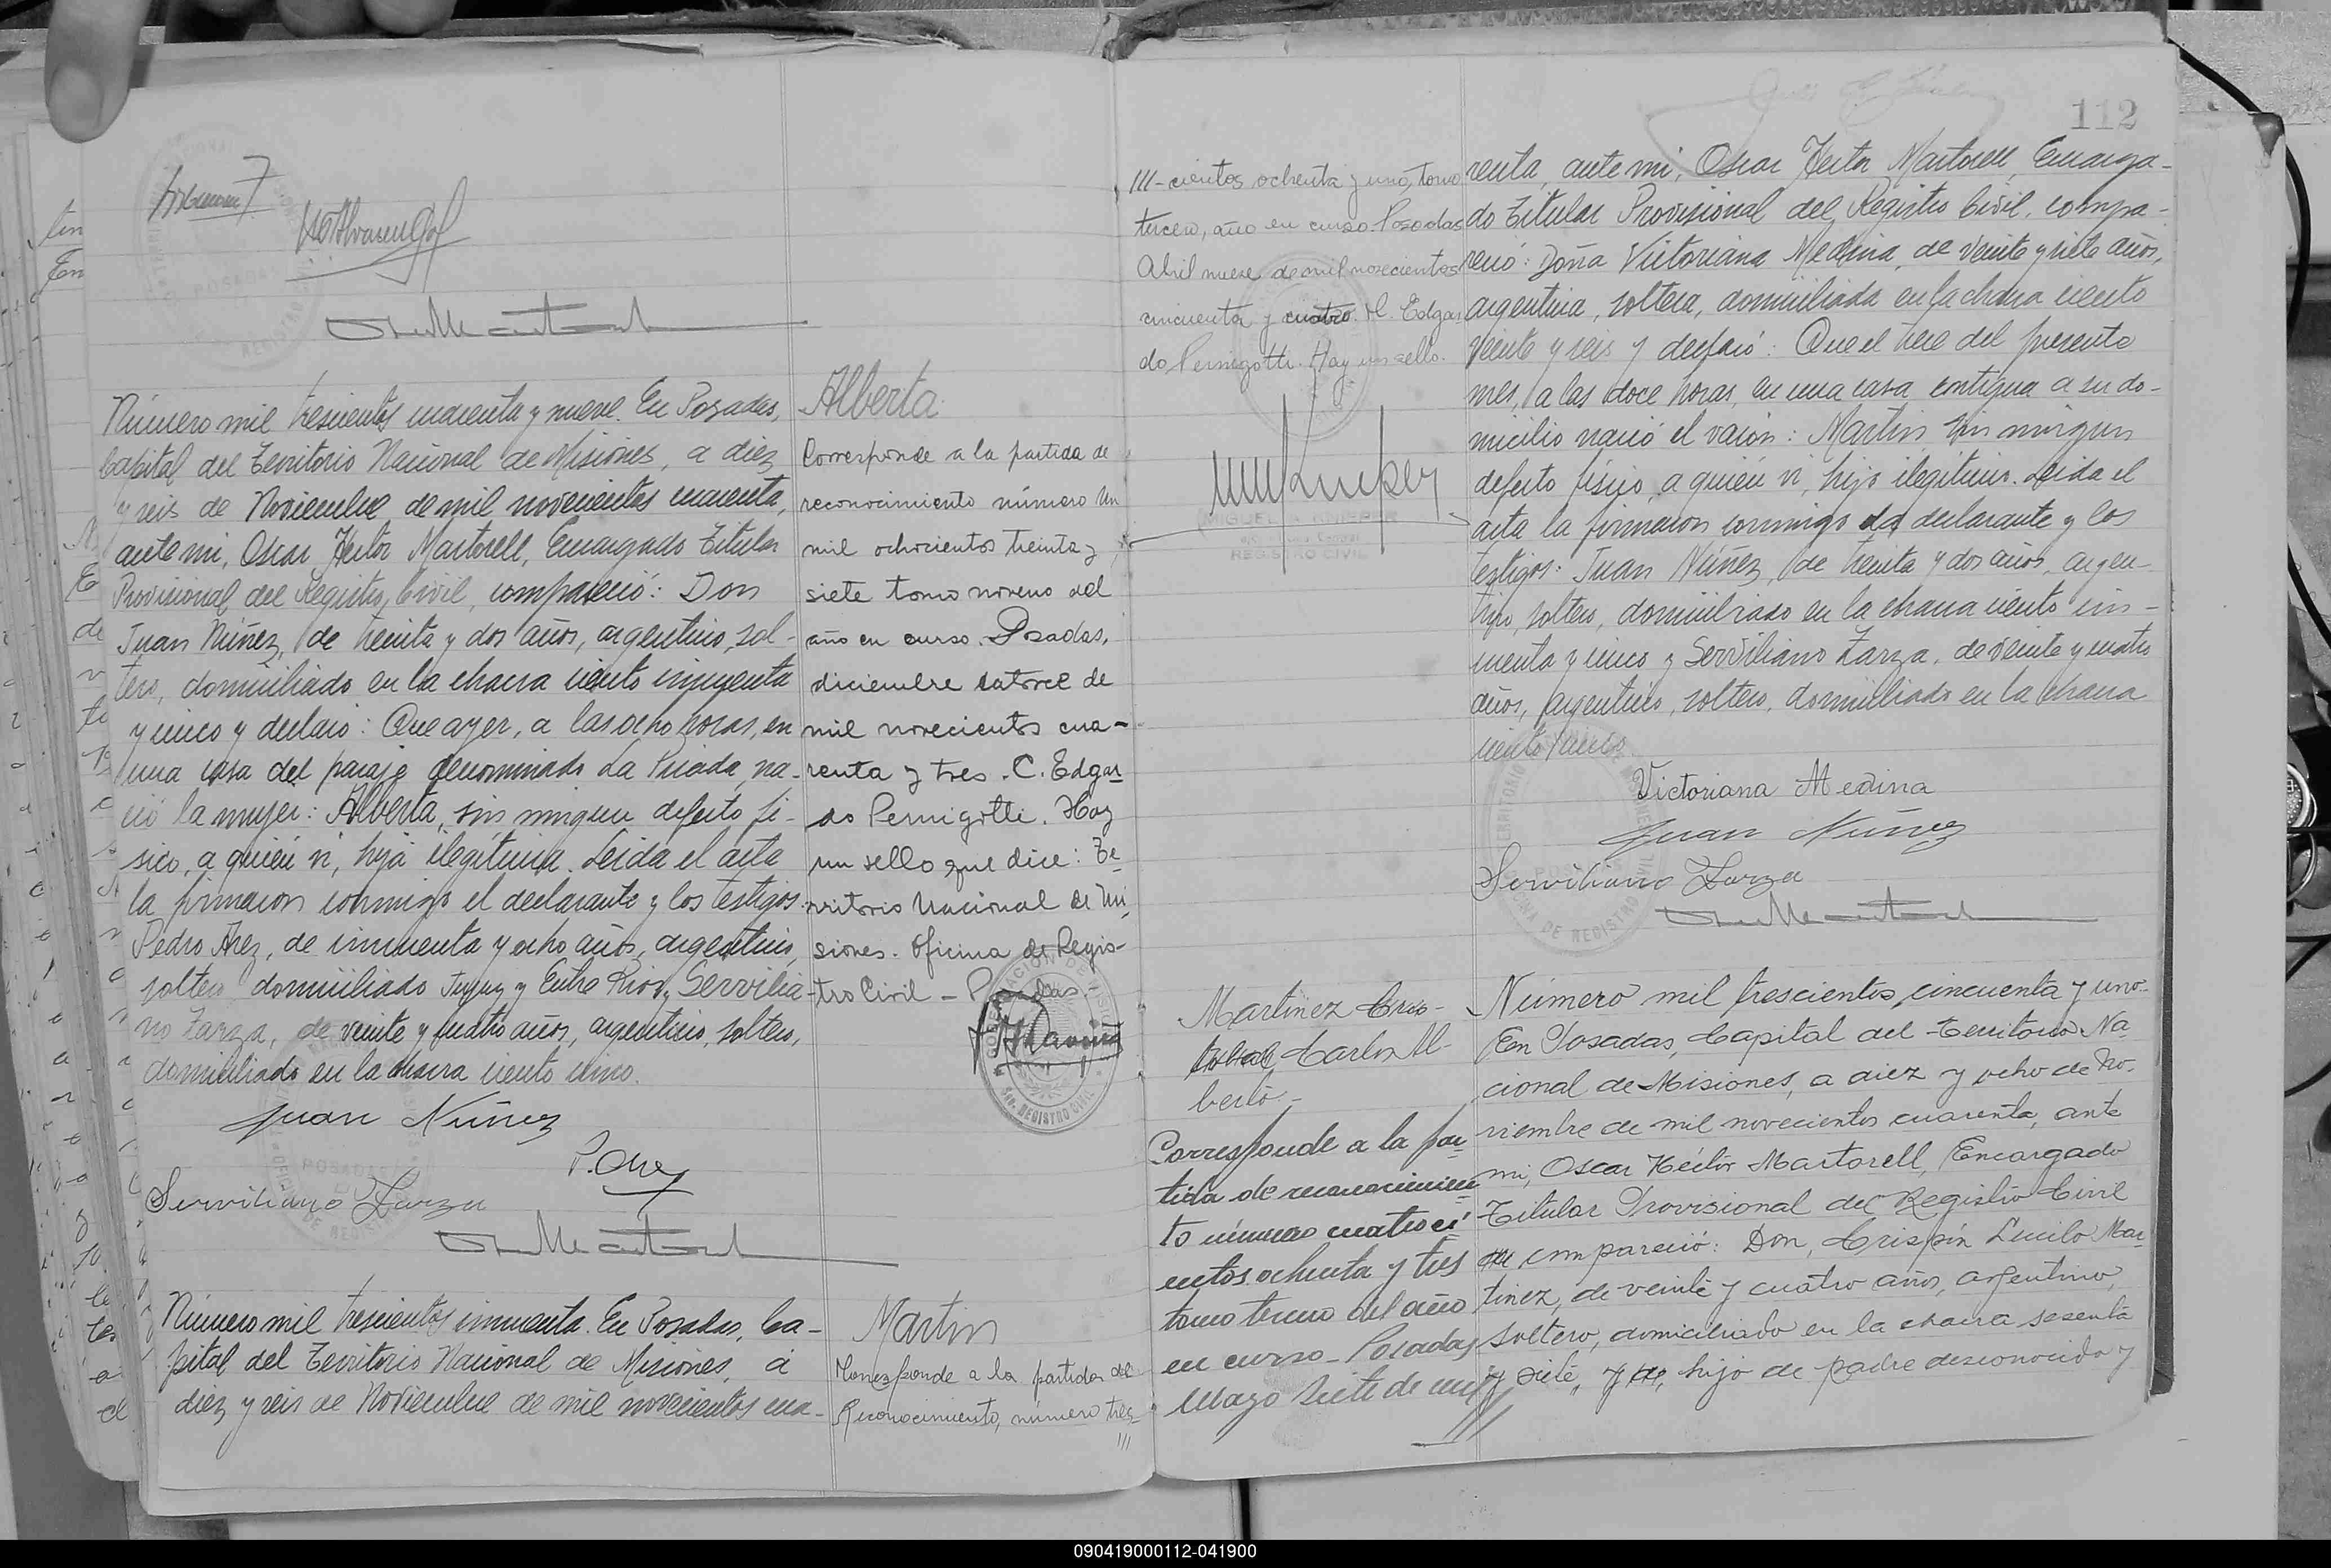 Número mil trescientos cuarenta y nueve. En Posadas,
Capital del Territorio Nacional de Misiones, a diez
y seis de Noviembre de mil novecientos cuarenta,
ante mi, Oscar Hector Martorell, Encargado Titular
Provisional del Registro Civil, compareció: Don
Juan Núñez, de treinta y dos años, argentino, sol-
tero, domiciliado en la chacra ciento cincuenta
y cinco y declaró: Que ayer, a las ocho horas, en
una casa del paraje denominado La Picada, na-
ció la mujer: Alberta, sin ningun defecto fi-
sico, a quien vi, hija ilegítima. Leida el acta
la firmaron conmigo el declarante y los testigos:
Pedro , de cincuenta y ocho años, argentino,
soltero domiciliado Jujuy y Entre Rios y Servilia-
no Zarza, de veinte y cuatro años, argentino, soltero,
domiciliado en la chacra ciento cinco.
Juan Núñez
Serviliano Zarza
Alberta
Corresponde a la partida de
reconocimiento número un
mil ochocientos treinta y
siete tomo noveno del
año en curso. Posadas,
diciembre catorce de
mil novecientos cua-
renta y tres. C. Edgar
do Pernigotti. Hay
un sello que dice: Te
rritorio Nacional de Mi
siones. Oficina de Regis-
tro Civil - Posadas.
Número mil trescientos cincuenta. En Posadas, Ca-
pital del Territorio Nacional de Misiones, á
diez y seis de Noviembre de mil novecientos cua-
Martin
Corresponde a la partida del
Reconocimiento, número tres-
///
112
///-cientos ochenta y uno, tomo
tercero, año en curso. Posadas
Abril nueve de mil novecientos
cincuenta y cuatro. C. Edgar
do Pernigotti. Hay un sello.
MIGUEL A. KNIEPER
REGISTRO CIVIL
renta, ante mi, Oscar Hector Martorell, Encarga-
do Titular Provisional del Registro Civil, compa-
reció: Doña Victoriana Medina, de veinte y siete años,
argentina, soltera, domiciliada en la chacra ciento
veinte y seis y declaró: Que el trece del presente
mes, a las doce horas, en una casa contigua a su do-
micilio nació el varón: Martin sin ningun
defecto físico, a quien vi, hijo ilegitimo. Leida el
acta la firmaron conmigo la declarante y los
testigos: Juan Núñez, de treinta y dos años, argen-
tino, soltero, domiciliado en la chacra ciento cin-
cuenta y cinco y Serviliano Zarza, de veinte y cuatro
años, argentino, soltero, domiciliado en la chacra
ciento cinco
Victoriana Medina
Juan Núñez
Serviliano Zarza
Martinez Cris-
tobal, Carlos Al-
berto -
Corresponde a la par
tida de reconocimien
to número cuatroci
entos ochenta y tres
tomo tercero del año
en curso - Posadas
Mayo siete de mil
Número mil trescientos cincuenta y uno-
En Posadas, Capital del Territorio Na
cional de Misiones, a diez y ocho de No-
viembre de mil novecientos cuarenta, ante
mi, Oscar Héctor Martorell, Encargado
Titular Provisional del Registro Civil
compareció: Don, Crispín Lucilo Mar
tinez, de veinte y cuatro años, argentino,
soltero, domiciliado en la chacra sesenta
y siete, y de, hijo de padre desconocido y
090419000112-041900